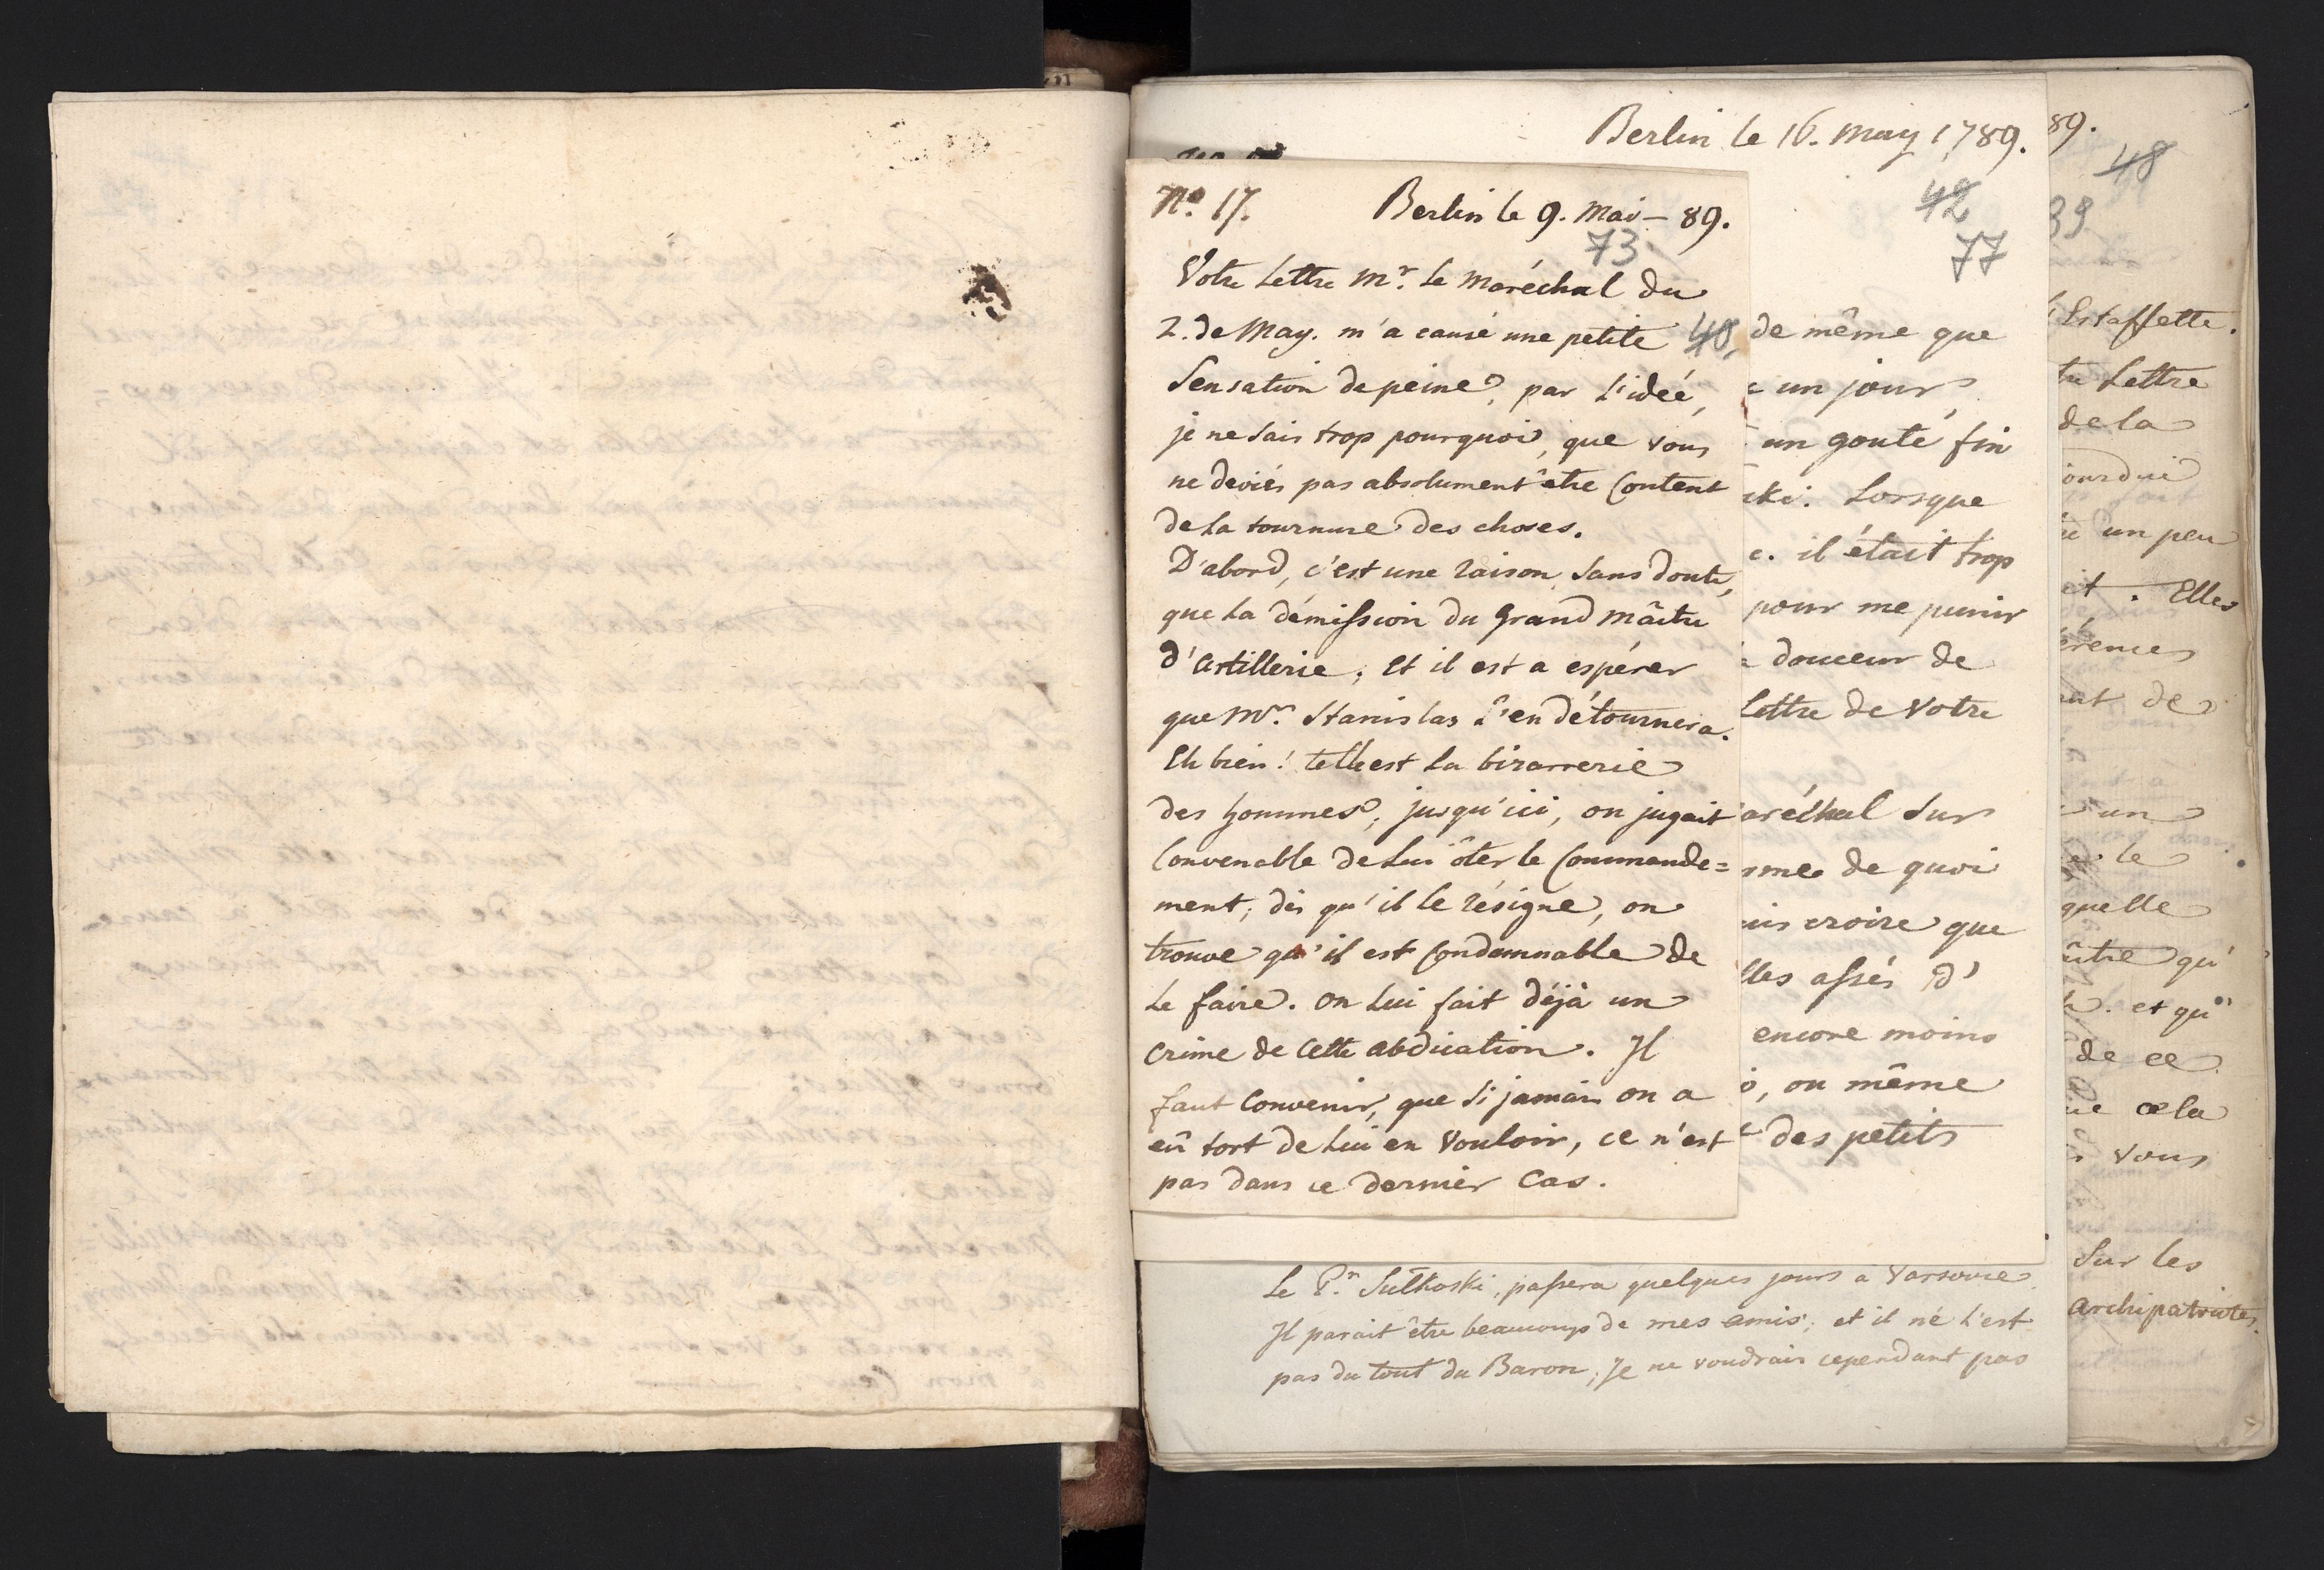 No. 17. Berlin le 9. Mai – 89.
73.
Votre Lettre Mr. Le Maréchal du
2. de May. m'a causé une petite 40.
Sensation de peine, par L'idée,
je ne sais trop pourquoi, que vous
ne deviés pas absolument être Content
de La tournure des choses.
D'abord, c'est une raison, sans doute,
que La démission du Grand Mâitre
d'Artillerie, et il est a espérer
que Mr. Stanislas L'en détournera.
Eh bien! telle est La bizarrerie
des hommes; jusqu'ici, on jugait
Convenable de Lui ôter le Commande=
ment; dès qu'il le résigne, on
trouve qu'il est Condamnable de
Le faire. On Lui fait déjà un
crime de cette abdication. Il
faut Convenir, que si jamais on a
eû tort de Lui en Vouloir, ce n'est
pas dans ce dernier Cas.
Berlin le 16. May 1789.
42
77
de même que
un jour
un gouté fin
ski. Lorsque
e. il était trop
pour me punir
douceur de
Lettre de Votre
aréchal Sur
sme de quoi
uis croire que
lles assés d'
encore moins
o, ou même
des petits
Le Pr. Sulkoski, passera quelques jours a Varsovie.
Il parait être beaucoup de mes amis; et il né L'est
pas du tout du Baron; Je ne voudrais cependant pas
89.
48
39
L'Estaffette.
tre Lettre
de la
ourdui
un peu
et. Elles
érences
ent de
un
le
quelle
aître qu'
et qu'
de ce
ue cela
vous
Sur les
Archipatriotes.